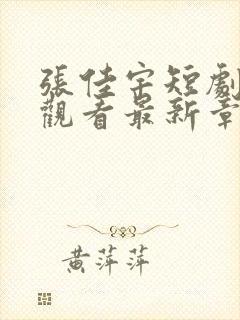 張佳宗短劇
觀看最新章
黃萍萍